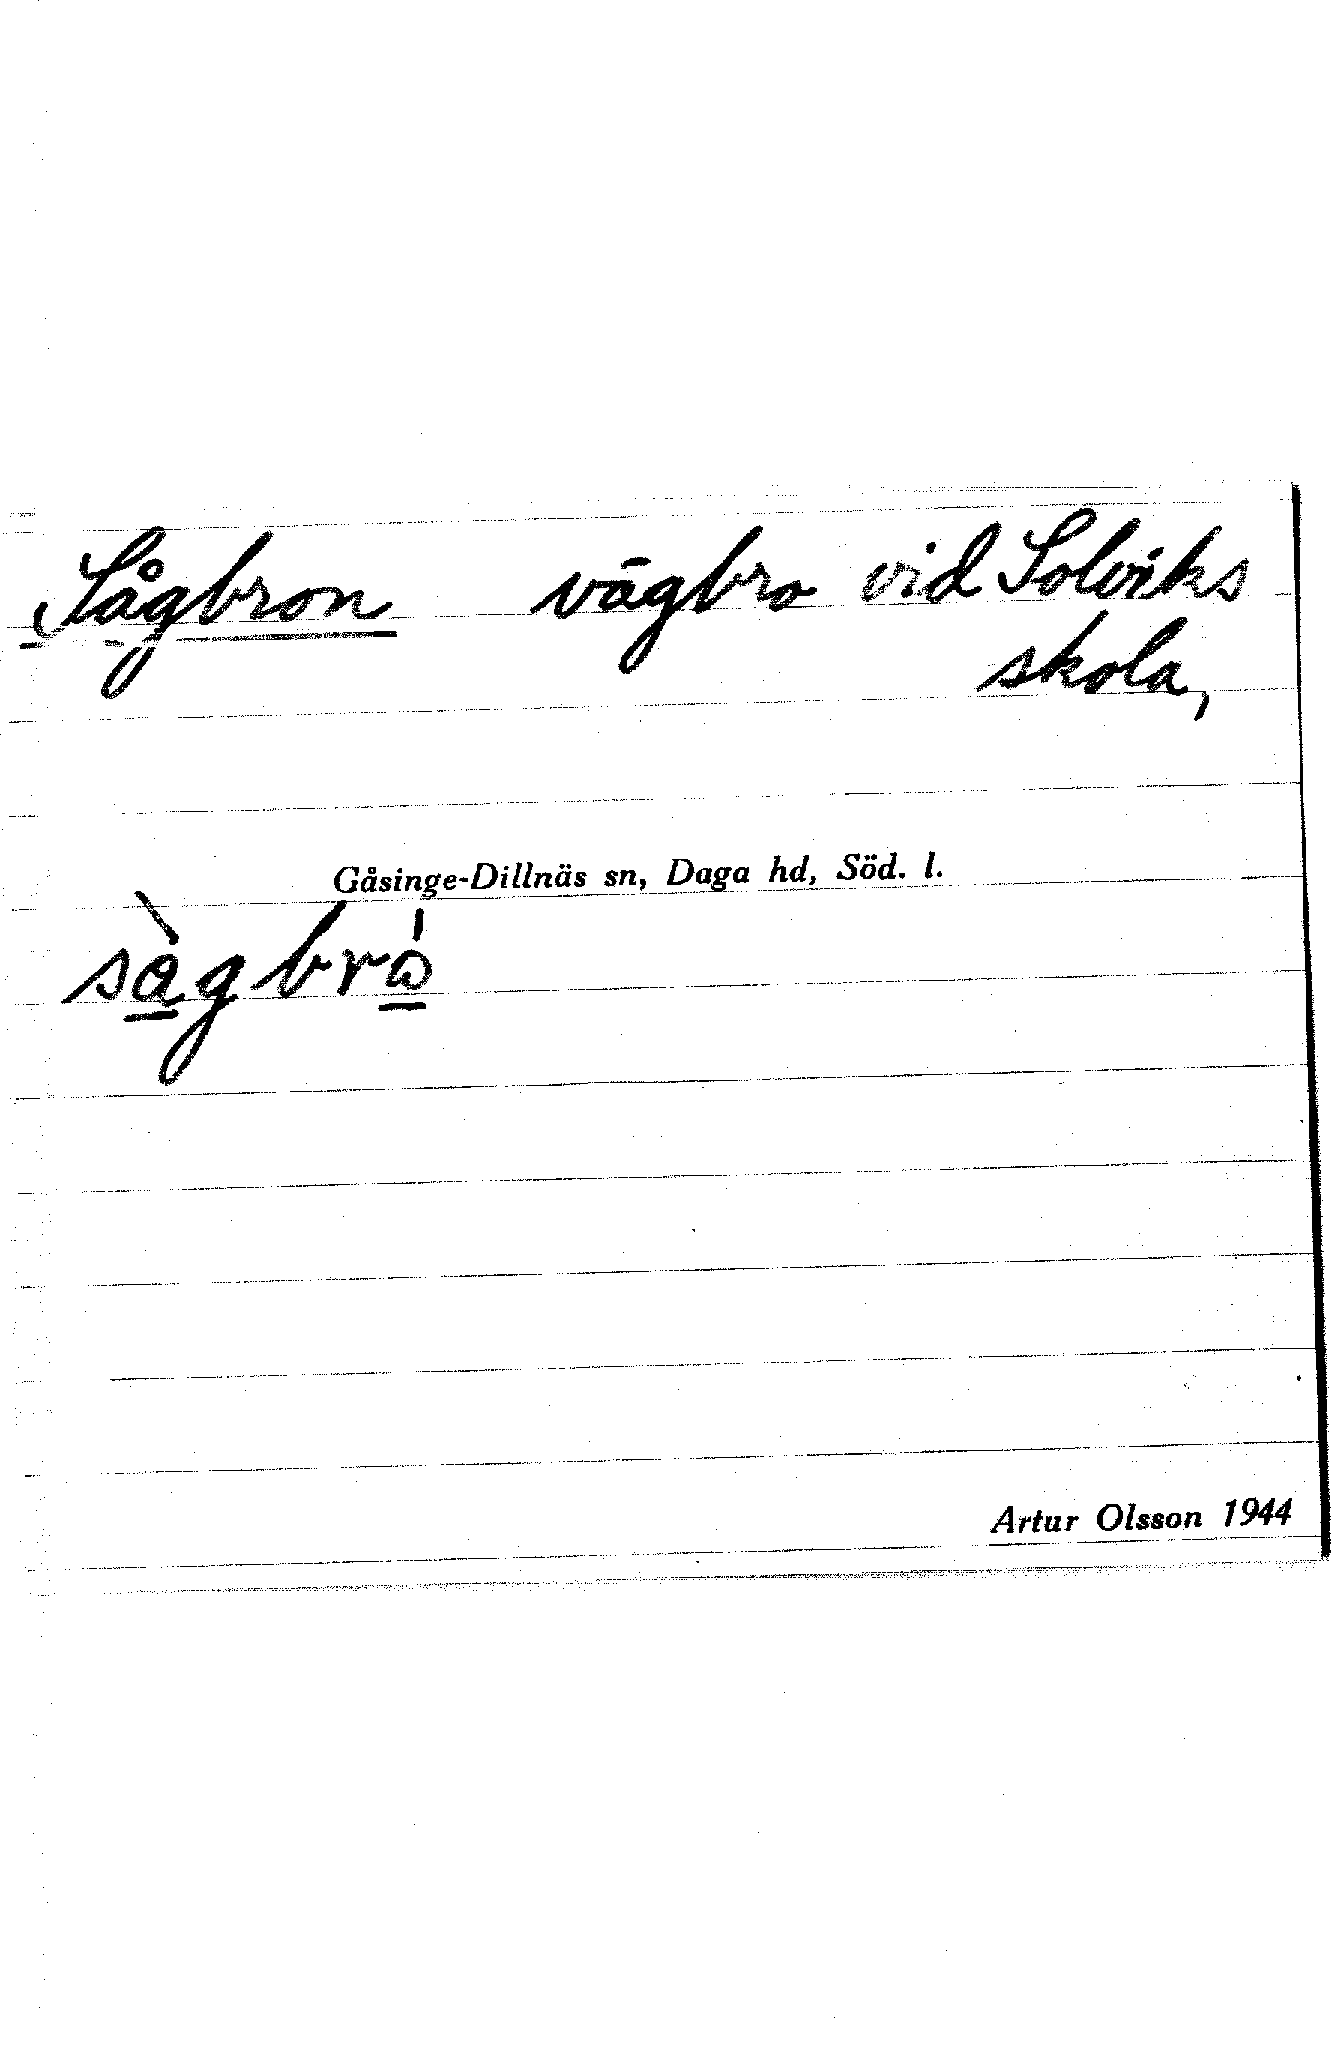 Sågbron vägbro vid Solviks
skola,
Gåsinge-Dillnäs sn, Daga hd, Söd. l.
sàgbrò
Artur Olsson 1944